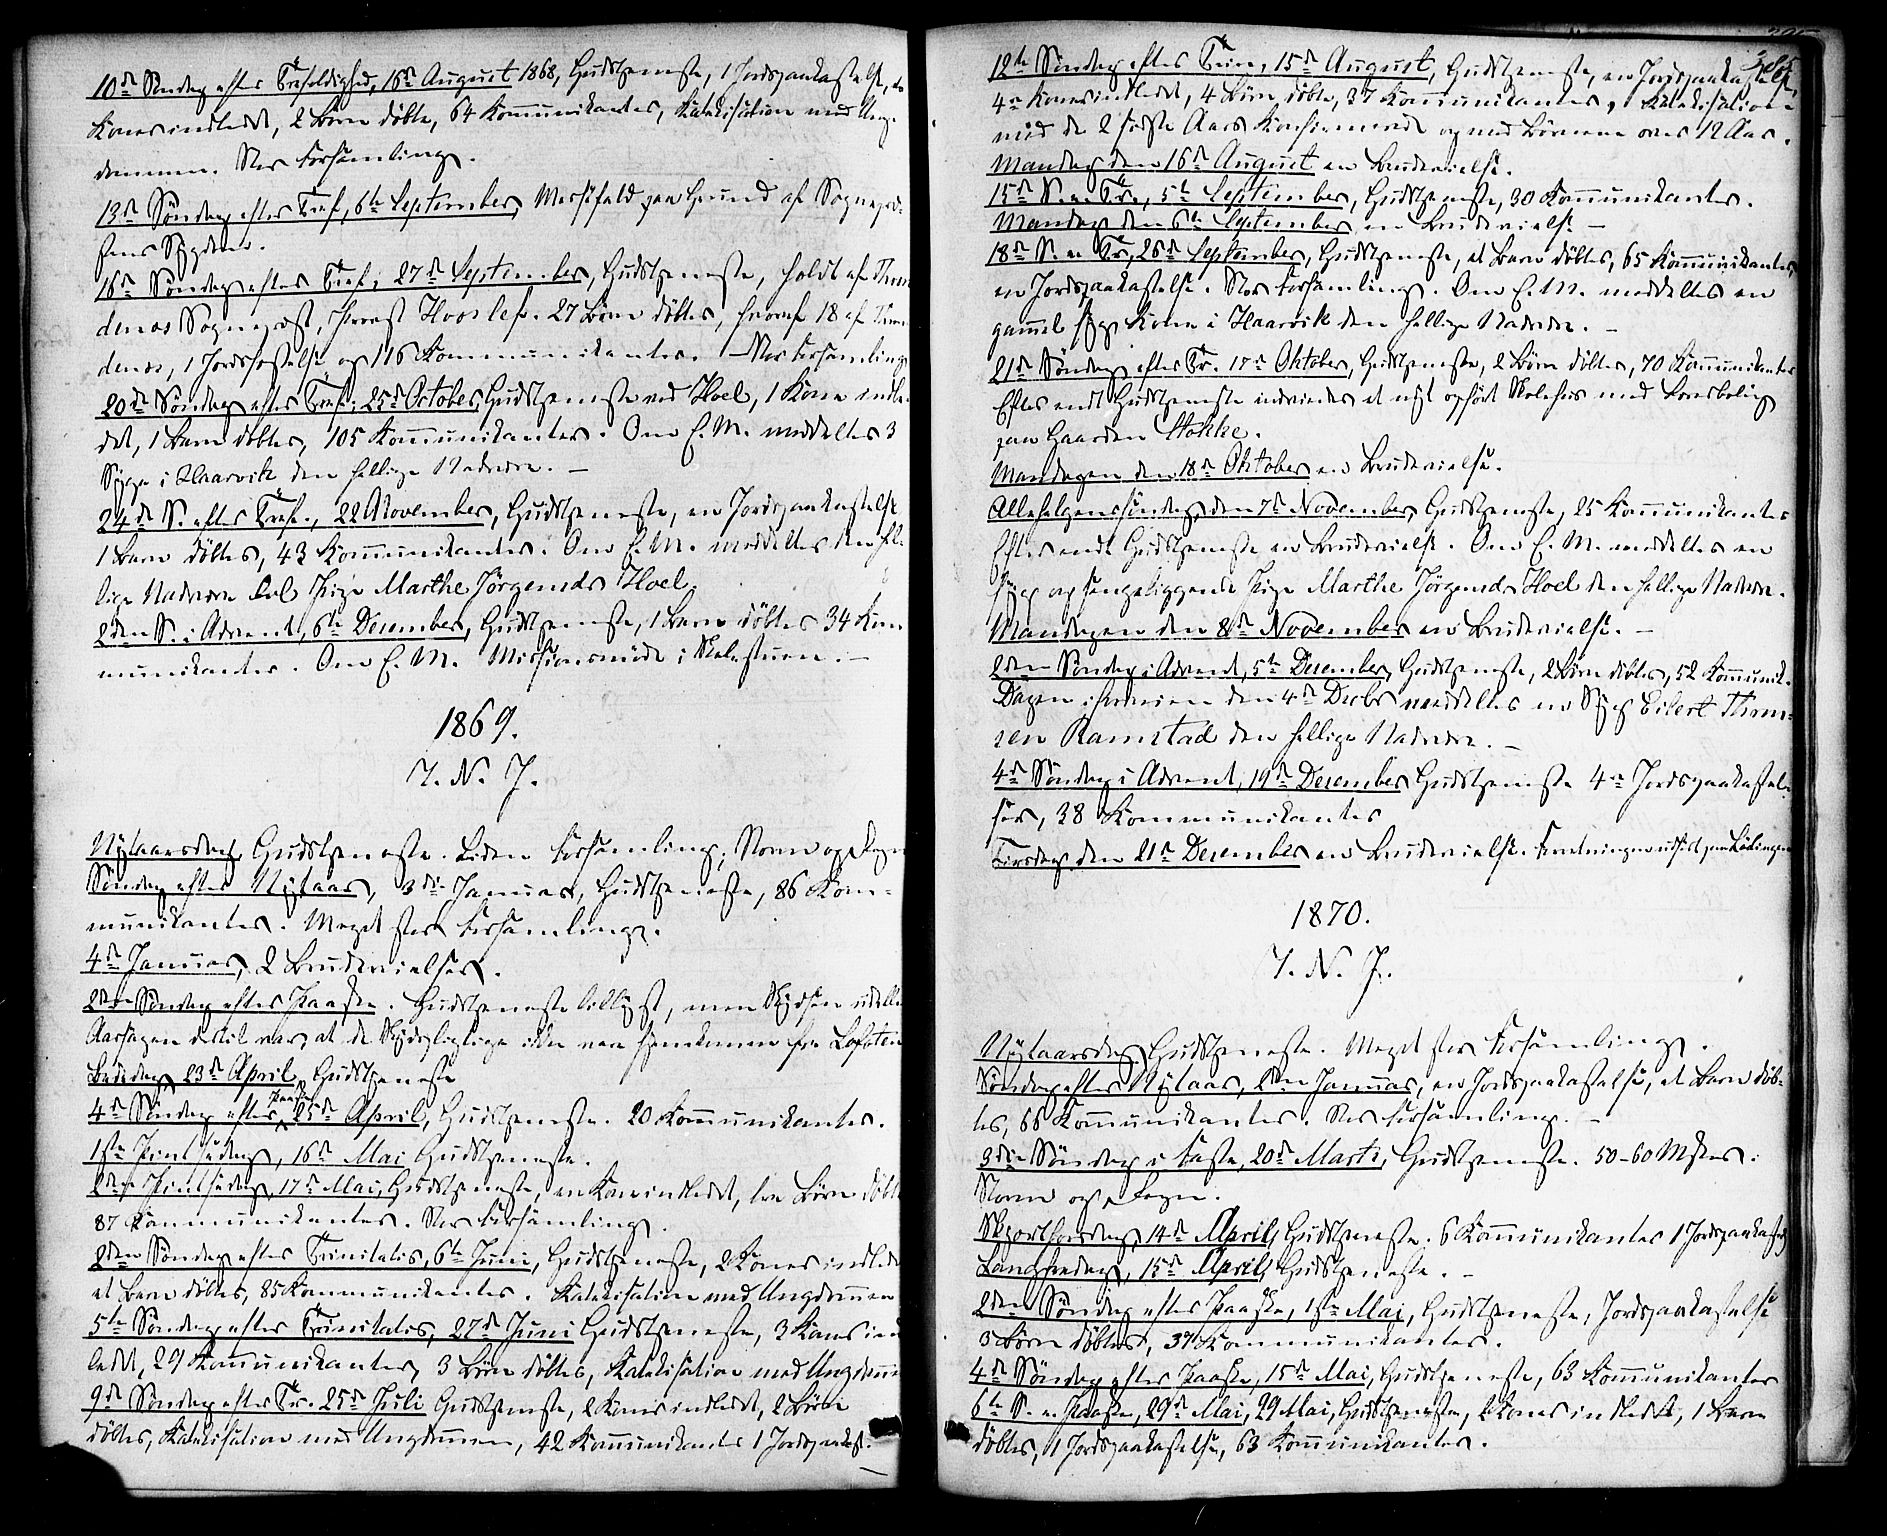 10de Søndag efter Trefoldighed, 16de August 1868, Gudstjeneste, 1 Jordspaakastelse, en
Kones indledet, 2 Børn døbte, 64 Kommunikanter, Katekisation med Ung-
dommen. Stor Forsamling.
13de Søndag efter Tref., 6te September, Messefald paa Grund af Sognepræ-
stens Sygdom.
16de Søndag efter Tref., 27de September, Gudstjeneste, holdt af
Sognepræst, Provst Hoorlef. 27 Børn døbtes, hvoraf 18 af
1 Jordfæstelse og 116 Kommunikanter. Stor Forsamling
20de Søndag efter Tref., 25de October, Gudstjeneste ved Hoel, 1 Kone indle-
det, 1 Barn døbtes, 105 Kommunikanter. Om E. M. meddeltes 3
Syge i Haarvik den hellige Nadvere. –
24de S. efter Tref., 22 November, Gudstjeneste, en Jordspaakastelse
1 Barn døbtes, 43 Kommunikanter. Om E. M. meddeltes den hel-
lige Nadvere Pige Marthe Jörgensds Hoel.
2den S. i Advent, 6te December, Gudstjeneste, 1 Barn døbtes 34 Kom
munikanter. Om E. M. Missionsmöde i Skolestuen. –
1869.
I. N. J.
Nytaarsdag, Gudstjeneste. Liden Forsamling; Storm og Regn
Søndag efter Nytaar, 3die Januar, Gudstjeneste, 86 Kom-
munikanter. Meget stor Forsamling.
4de Januar, 2 Brudevielser.
2den Søndag efter Paaske. Gudstjeneste men Skydsen udeblev
Aarsagen dertil var, at de Skydspligtige ikke var hjemkomne fra Lofoten
Bededag, 23de April, Gudstjeneste
4de Søndag efter Paaske, 25de April, Gudstjeneste. 20 Kommunikanter.
1ste Pintsedag, 16de Mai Gudstjeneste.
2den Pintsedag, 17de Mai, Gudstjeneste, en Kone indledet, tre Børn døbte
87 Kommunikanter. Stor Forsamling.
2den Søndag efter Trinitatis, 6te Juni, Gudstjeneste, 2 Koner indledet
et Barn døbtes, 85 Kommunikanter. Katekisation med Ungdommen
5te Søndag efter Trinitatis, 27de Juni Gudstjeneste, 3 Koner ind
ledet, 29 Kommunikanter, 3 Børn döbtes, Katekisation med Ungdommen
9de Søndag efter Tr. 25de Juli Gudstjeneste, 2 Koner indledet, 2 Børn
döbtes, Katekisation med Ungdommen, 42 Kommunikanter 1 Jordspaakast.
12te Søndag efter Trin., 15de August, Gudstjeneste, en Jordspaakastelse,
4re Koner indledet, 4 Børn døbte, 37 Kommunikanter, Katekisation
med de 2 sidste Aars Konfirmerede og med Børnene over 12 Aar.
Mandag den 16de August en Brudevielse.
15de S. e. Tr., 5te September, Gudstjeneste, 30 Kommunikanter.
Mandag den 6te September en Brudevielse –
18de S. e. Tr., 26de September, Gudstjeneste, et Barn döbtes, 65 Kommunikanter,
en Jordspaakastelse. Stor Forsamling. Om E. M. meddeltes en
gammel syg Kone i Haarvik den hellige Nadvere. –
21de Søndag efter Tr. 17de Oktober, Gudstjeneste, 2 Børn döbtes, 70 Kommunikanter
Efter endt Gudstjeneste indviedes et nyt opført Skolehus med Lærerbolig
paa Gaarden Stokke.
Mandagen den 18de Oktober en Brudevielse.
Allehelgenssöndag den 7de November, Gudstjeneste, 25 Kommunikanter
Efter endt Gudstjeneste en Brudevielse. Om E. M. meddeltes en
syg og sengeliggende Pige Marthe Jörgensds Hoel den hellige Nadvere.
Mandagen den 8de November en Brudevielse. –
2den Søndag i Advent, 5te December, Gudstjeneste, 2 Børn döbtes, 52 Kommunik.
Dagen iforveien den 4de Decbr meddeltes en Syg Eilert Thom-
sen Ramstad den hellige Nadvere. –
4de Søndag i Advent, 19de December Gudstjeneste 4re Jordspaakastel-
ser, 38 Kommunikanter
Tirsdag den 21de December en Brudevielse. Forretningen udført paa
1870.
I. N. J.
Nytaarsdag Gudstjeneste. Meget stor Forsamling.
Søndag efter Nytaar, 2den Januar, en Jordspaakastelse, et Barn döb-
tes, 66 Kommunikanter. Stor Forsamling. –
3die Søndag i Faste, 20de Marts, Gudstjeneste. 50–60 Msker.
Storm og Regn.
Skjærthorsdag, 14de April, Gudstjeneste. 6 Kommunikanter 1 Jordspaakastelse
Langfredag, 15de April, Gudstjeneste. –
2den Søndag efter Paaske, 1ste Mai, Gudstjeneste, Jordspaakastelse
3 Børn döbtes, 37 Kommunikanter.
4de Søndag efter Paaske, 15de Mai, Gudstjeneste, 63 Kommunikanter
6te S. e. Paaske, 29de Mai, 29 Mai, Gudstjeneste, 2 Koner indledet, 1 Barn
döbtes, 1 Jordspaakastelse, 63 Kommunikanter.